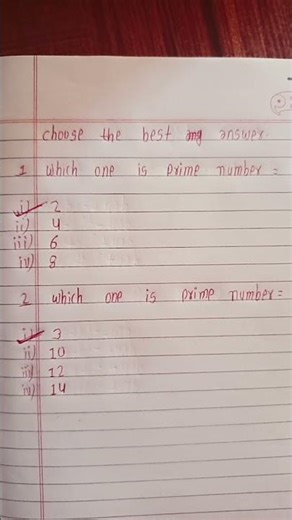 choose the best ang answer.
1 which one is prime number =
i) 2
ii) 4
iii) 6
iv) 8
2 which one is prime number =
i) 3
ii) 10
iii) 12
iv) 14